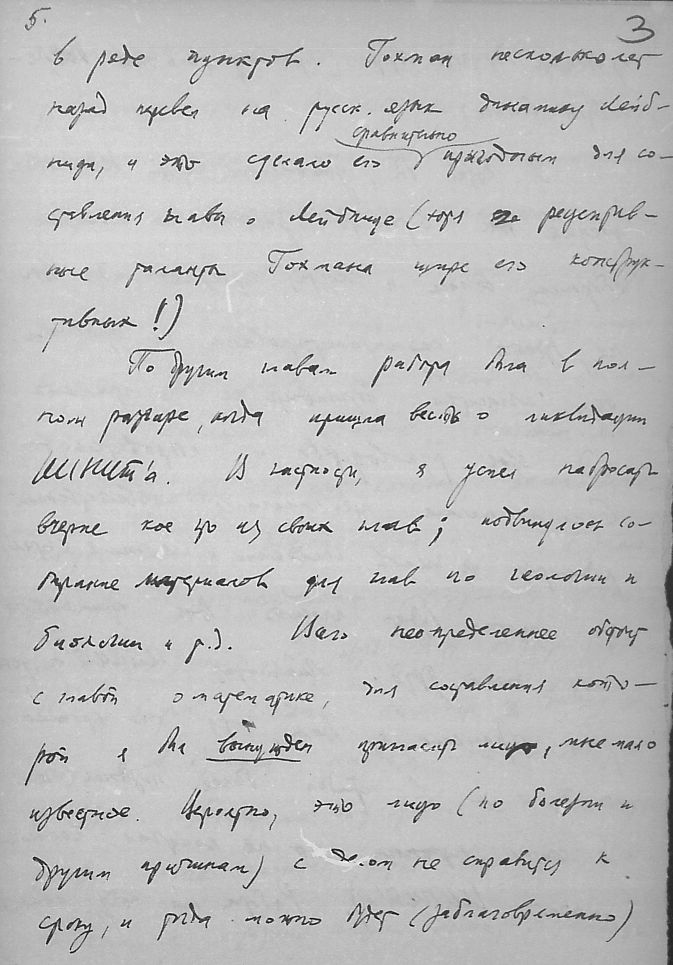 5.
3
в ряде пунктов. Гохман несколько лет
назад перевел на русск. язык динамику Лейб-
сравнительно
ница, и это сделало его пригодным для со-
ставления главы о Лейбнице (хотя рецептив-
ные таланты Гохмана шире его конструк-
тивных!)
По другим главам работа была в пол-
ном разгаре, когда пришла весть о ликвидации
ИИНИТ'а. В частности, я успел набросать
вчерне кое что из своих глав; подвинулось со-
бирание материалов для глав по геологии и
биологии и т.д. Всего неопределеннее обстоит
с главой о математике, для составления кото-
рой я был вынужден пригласить лицо, мне мало
известное. Вероятно, это лицо (по болезни и
другим причинам) с делом не справится к
сроку, и тогда можно будет (заблаговременно)